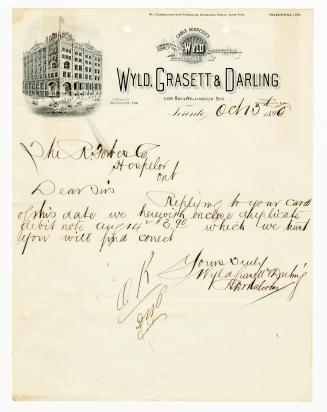 ALL COMMUNICATIONS SHOULD BE ADDRESSED DIRECT TO THE FIRM.
TELEPHONE 1391
CABLE ADDRESSES
WYLD
HUDDERSFIELD
MANCHESTER
WYLD, GRASETT & DARLING
COR. BAY & WELLINGTON STS.
Toronto, Oct 13th 1896
The R. Forbes Co
Hespeler
Ont
Dear Sirs
Replying to your card
of this date we herewith enclose duplicate
debit note Aug 14th 3.90 which we trust
you will find correct
Yours truly
Wyld Grasett & Darling
O.K